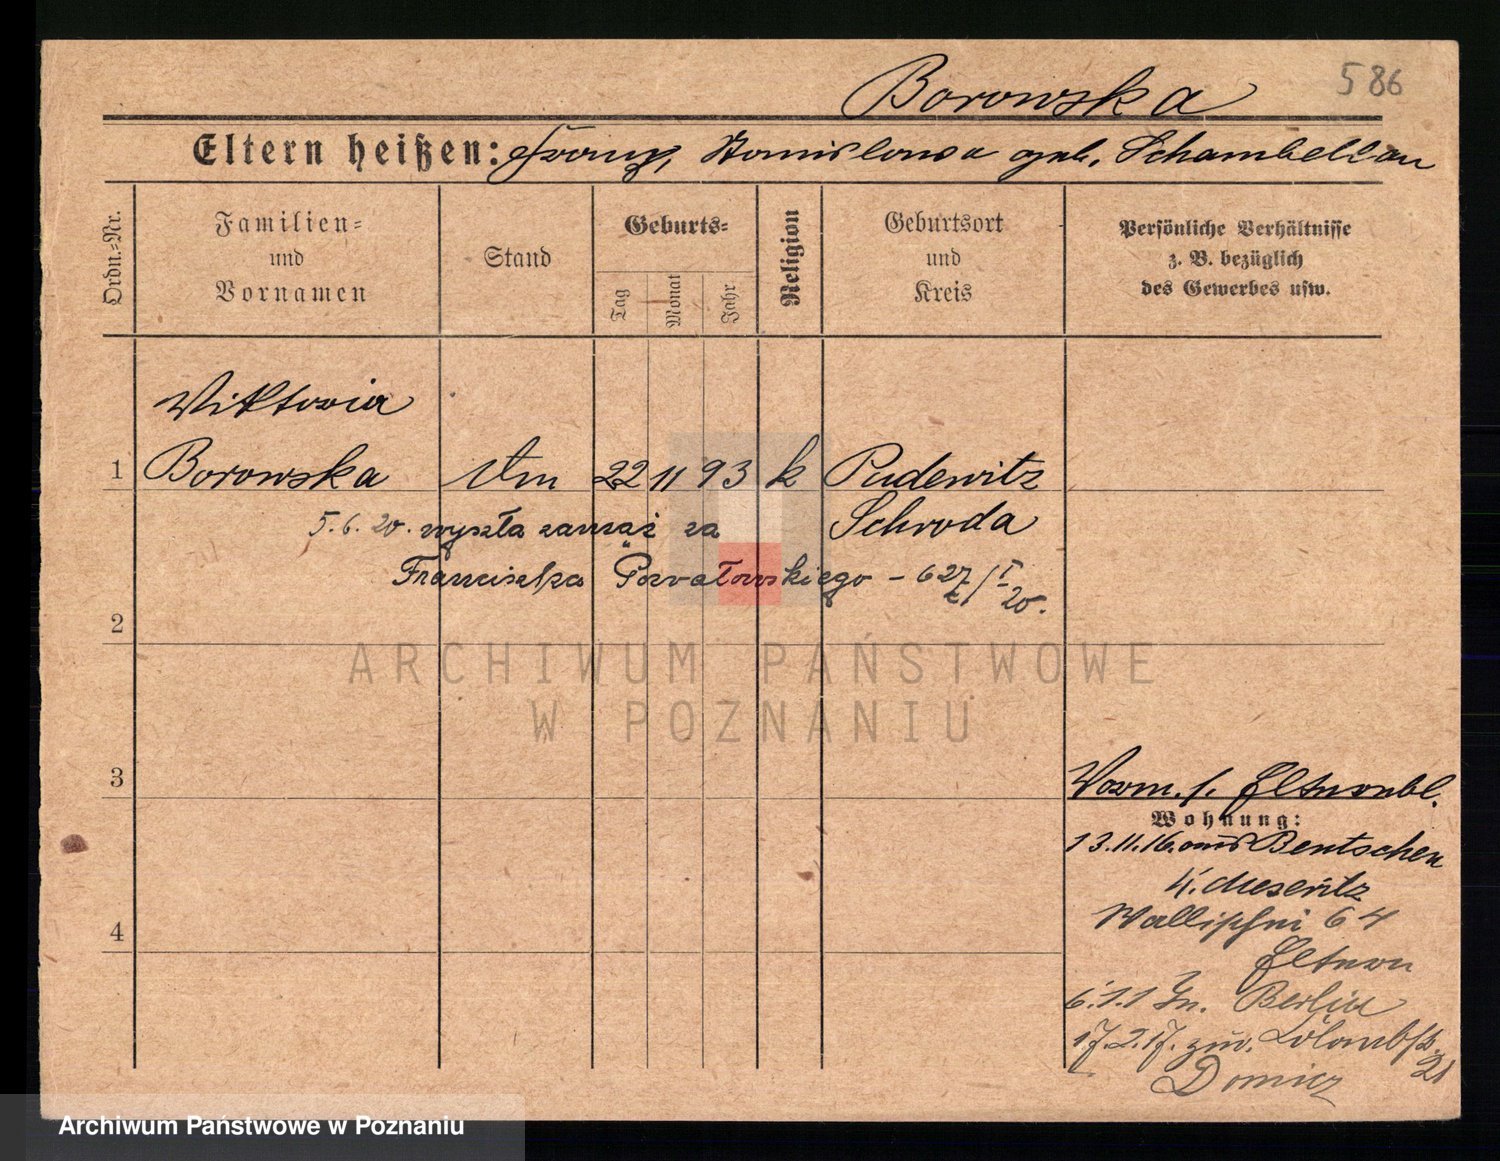 586
Borowska
Eltern heißen: Franz, Stanislawa geb. Schambellan
Ordn.-Nr.
Familien-
und
Vornamen
Stand
Geburts-
Tag
Monat
Jahr
Religion
Geburtsort
und
Kreis
Persönliche Verhältnisse
z. B. bezüglich
des Gewerbes usw.
Viktoria
1 Borowska 22 11 93 k Pudewitz
Schroda
5.6.20. wyszła zamąż za
Franciszka Powałowskiego - 627
20.
2
ARCHIWUM PAŃSTWOWE
W POZNANIU
3
Vorm. f.
Wohnung:
13.11.16. aus Bentschen
K. Meseritz
Wallischei 64
Eltern
6.1.17 Berlin
17.2.17. zur.
21
Domicz
4
Archiwum Państwowe w Poznaniu